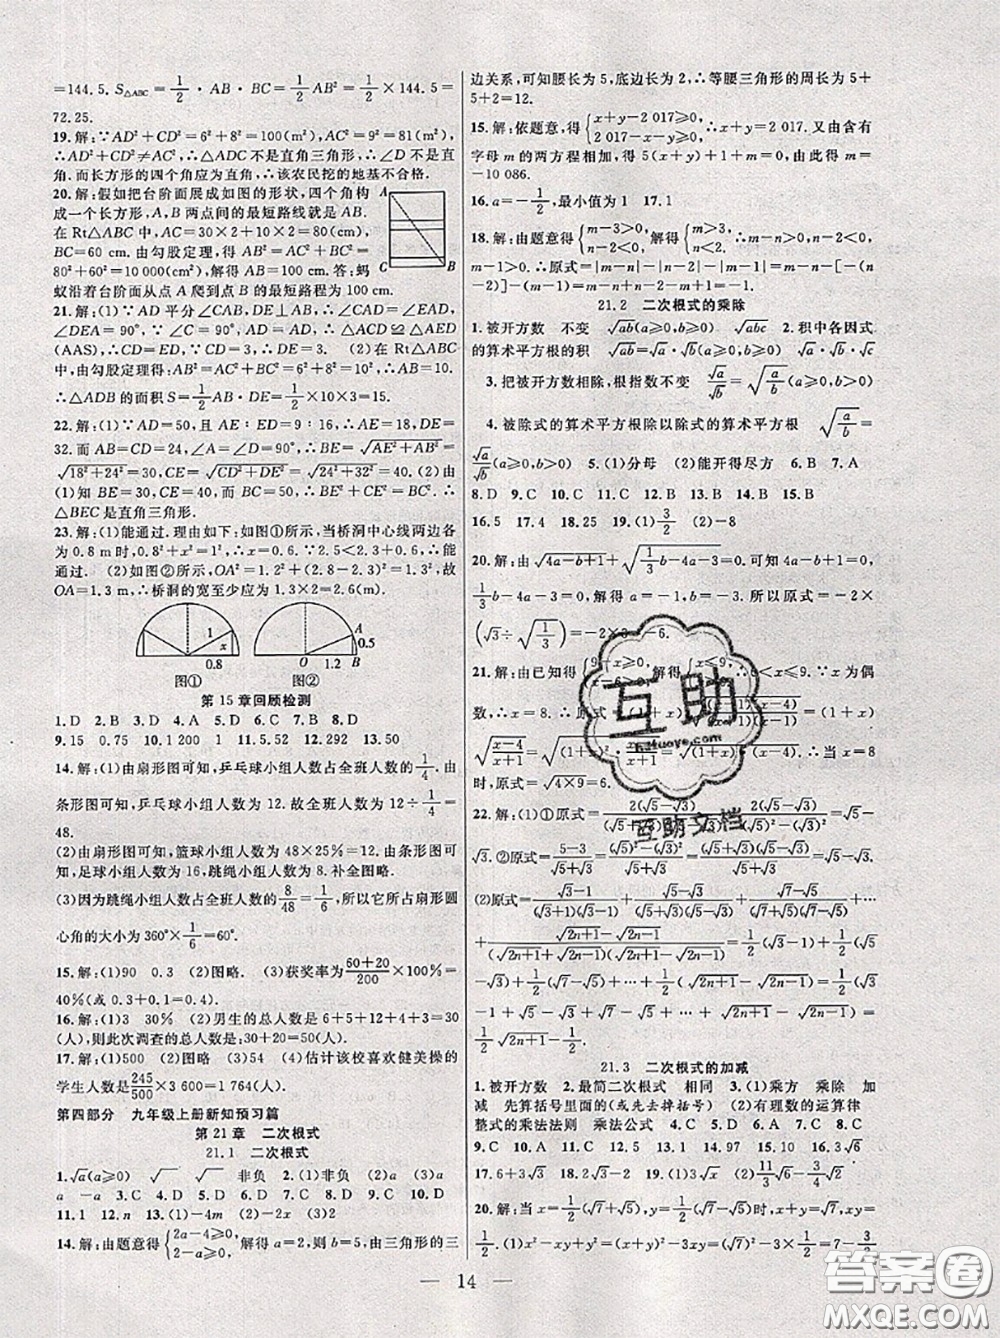 =144.5. S△ABC=1/2·AB·BC=1/2AB²=1/2×144.5=
72.25.
19.解:∵AD²+CD²=6²+8²=100(m²),AC²=9²=81(m²),
∴AD²+CD²≠AC²,∴△ADC不是直角三角形,∴∠D不是直
角.而长方形的四个角应为直角,∴该农民挖的地基不合格.
20.解:假如把台阶面展成如图的形状,四个角构
成一个长方形,A,B两点间的最短路线就是AB.
在Rt△ABC中,AC=30×2+10×2=80(cm),
BC=60 cm.由勾股定理,得AB²=AC²+BC²=
80²+60²=10 000(cm²),解得AB=100 cm.答:蚂
蚁沿着台阶面从点A爬到点B的最短路程为100 cm.
A
C B
21.解:(1)∵AD平分∠CAB,DE⊥AB,∴∠CAD=∠EAD,
∠DEA=90°,∵∠C=90°,AD=AD,∴△DAC≌△DAE
(AAS),∴CD=DE=3,∴DE=3. (2)在Rt△ABC中,
由勾股定理得:AB²=AC²+BC²=6²+8²=100,∴AB=10.
∴△ADB的面积S=1/2AB·DE=1/2×10×3=15.
22.解:(1)∵AD=50,且AE∶ED=9∶16,∴AE=18,DE=
32.而AB=CD=24,∠A=∠D=90°,∴BE=√(AE²+AB²)=
√(18²+24²)=30,CE=√(CD²+DE²)=√(24²+32²)=40. (2)由
(1)知BE=30,CE=40,BC=50,∴BE²+CE²=BC²,∴
△BEC是直角三角形.
23.解:(1)能通过.理由如下:如图①所示,当桥洞中心线两边各
为0.8 m时,由勾股定理得x²+0.8²=1²,∴x=0.6,∴能
通过. (2)如图②所示,OA²=1.2²+(2.8-2.3)²=1.3²,故
OA=1.3 m,∴桥洞的宽至少应为1.3×2=2.6(m).
1 x 0.8 图①
A 0.5 O 1.2 B 图②
第15章回顾检测
1.D 2.C 3.D 4.A 5.D 6.C 7.B 8.D
9.15 0.75 10.1 200 1 11.5.52 12.292 13.50
14.解:(1)由扇形图可知,乒乓球小组人数占全班人数的1/4.由
条形图可知,乒乓球小组人数为12.故全班人数为12÷1/4=
48.
(2)由扇形图可知,篮球小组人数为48×25%=12.由条形图可
知,足球小组人数为16,跳绳小组人数为8.补全图略.
(3)因为跳绳小组人数占全班人数的8/48=1/6,所以它所占扇形圆
心角的大小为360°×1/6=60°.
15.解:(1)90 0.3 (2)图略. (3)获奖率为(60+20)/200×100%=
40%(或0.3+0.1=0.4).
16.解:(1)3 30% (2)男生的总人数是6+5+12+4+3=30
(人),则此次调查的总人数是:30+20=50(人).
17.解:(1)500 (2)图略 (3)54 (4)估计该校喜欢健美操的
学生人数是245/500×3 600=1 764(人).
第四部分 九年级上册新知预习篇
第21章 二次根式
21.1 二次根式
1.√a(a≥0) √ √ 非负 2.(1)非负 (2)a (3)a
a -a 3.C 4.D 5.A 6.C 7.A 8.C 9.D 10.D
11.1 12.n 13.(1)-4m (2)-2x (3)2
14.解:由题意得{2a-4≥0,2-a≥0,解得a=2,则b=5,由三角形的三
边关系,可知腰长为5,底边长为2,∴等腰三角形的周长为5+
5+2=12.
15.解:依题意,得{x+y-2 017≥0,2 017-x-y≥0,∴x+y=2 017.又由含有
字母m的两方程相加,得5(x+y)+1+m=0,由此得m=
-10 086.
16.a=-1/2,最小值为1 17.1
18.解:由题意得{m-3>0,n-2<0,解得{m>3,n<2.∴m-n>0,n-2<0,
m-1>0.∴原式=|m-n|-|n-2|-|m-1|=m-n-[-(n
-2)]-(m-1)=m-n+n-2-m+1=-1.
21.2 二次根式的乘除
1.被开方数 不变 √ab(a≥0,b≥0) √abc 2.积中各因式
的算术平方根的积 √ab=√a·√b(a≥0,b≥0) √a·√b·√c
3.把被开方数相除,根指数不变 √a/√b=√(a/b)(a≥0,b>0)
4.被除式的算术平方根除以除式的算术平方根 √(a/b)=
√a/√b(a≥0,b>0) 5.(1)分母 (2)能开得尽方 6.B 7.A
8.D 9.C 10.D 11.C 12.A 13.C 14.B 15.B
16.5 17.4 18.25 19.(1)3/2 (2)-8
20.解:由√(4a-b+1)+√(1/3b-4a-3)=0.可知4a-b+1=0,
1/3b-4a-3=0,解得a=-1,b=-3.所以原式=-2×
(√3÷√(1/3))=-2×3=-6.
21.解:由已知得{9-x≥0,x-6>0,解得{x≤9,<x≤9.∵x为偶
数,∴x=8.原式=(1+x)
√((x-4)/(x+1))=√((1+x)²(x-4)).∴当x=8
时,原式=√(4×9)=6.
22.解:(1)①原式=2(√5-√3)=√5-
√3.②原式=(5-3)/(√5+√3)=√5-√3.
(2)原式=(√3-1)/((√3+1)(√3-1))+(√5-√3)/((√5+√3)(√5-√3))+(√7-√5)/((√7+√5)(√7-√5))+…
+(√(2n+1)-√(2n-1))/((√(2n+1)+√(2n-1))(√(2n+1)-√(2n-1)))=1/2(√3-1)+1/2(√5
-√3)+1/2(√7-√5)+…+1/2(√(2n+1)-√(2n-1))=1/2(√3
-1+√5-√3+√7-√5+…+√(2n+1)-√(2n-1))=1/2√(2n+1)
-1/2.
21.3 二次根式的加减
1.被开方数 2.最简二次根式 相同 3.(1)乘方 乘除 加
减 先算括号里面的(或先去掉括号) (2)有理数的运算律
整式的乘法法则 乘法公式 4.C 5.C 6.D 7.C 8.C
9.C 10.A 11.B 12.C 13.C 14.2√3 15.2 16.3√6
17.6+3√3 18.2√3-2 19.(1)3√x (2)11/3√3-3/4√6
20.解:当x=1/2(√7+√5),y=1/2(√7-√5)时,x+y=√7,xy=
1/2.(1)x²-xy+y²=(x+y)²-3xy=(√7)²-3×1/2=11/2.
14
互助
互助文档
答案圈
MXQE.COM